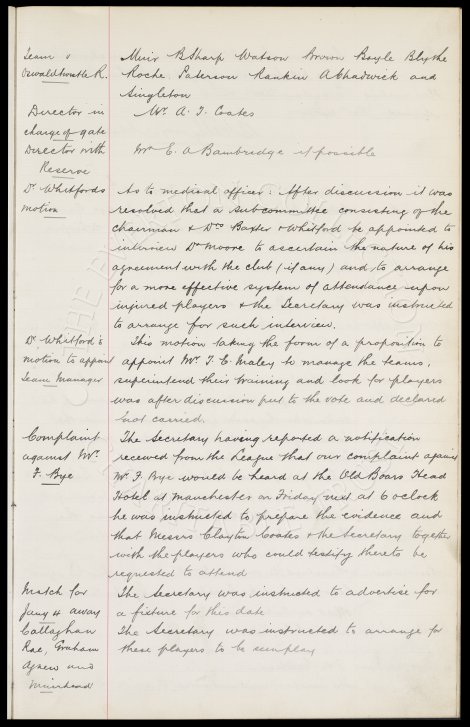 Team v Muir B Sharp Watson Brown Boyle Blythe
Oswaldtwistle R. Roche Paterson Rankin A Chadwick and
Singleton
Director in Mr. A. T. Coates
charge of gate
Director with Mr E. A Bambridge if possible
Reserve
Dr Whitfords As to medical officer: After discussion it was
motion resolved that a subcommittee consisting of the
chairman & Drs Baxter & Whitford be appointed to
interview Dr Moore to ascertain the nature of his
agreement with the club (if any) and to arrange
for a more effective system of attendance upon
injured players & the Secretary was instructed
to arrange for such interview.
Dr Whitford's This motion taking the form of a proposition to
motion to appoint appoint Mr. T. E. Maley to manage the teams,
Team Manager superintend their training and look for players
was after discussion put to the vote and declared
not carried.
Complaint The Secretary having reported a notification
against Mr received from the League that our complaint against
F. Bye Mr. F. Bye would be heard at the Old Boars Head
Hotel at Manchester on Friday next at 6 oclock
he was instructed to prepare the evidence and
that Messrs Clayton Coates & the Secretary together
with the players who could testify thereto be
requested to attend
Match for The Secretary was instructed to advertise for
Jany 4 away a fixture for this date
Callaghan The Secretary was instructed to arrange for
Rae, Graham these players to be
Agnew and
Muirhead